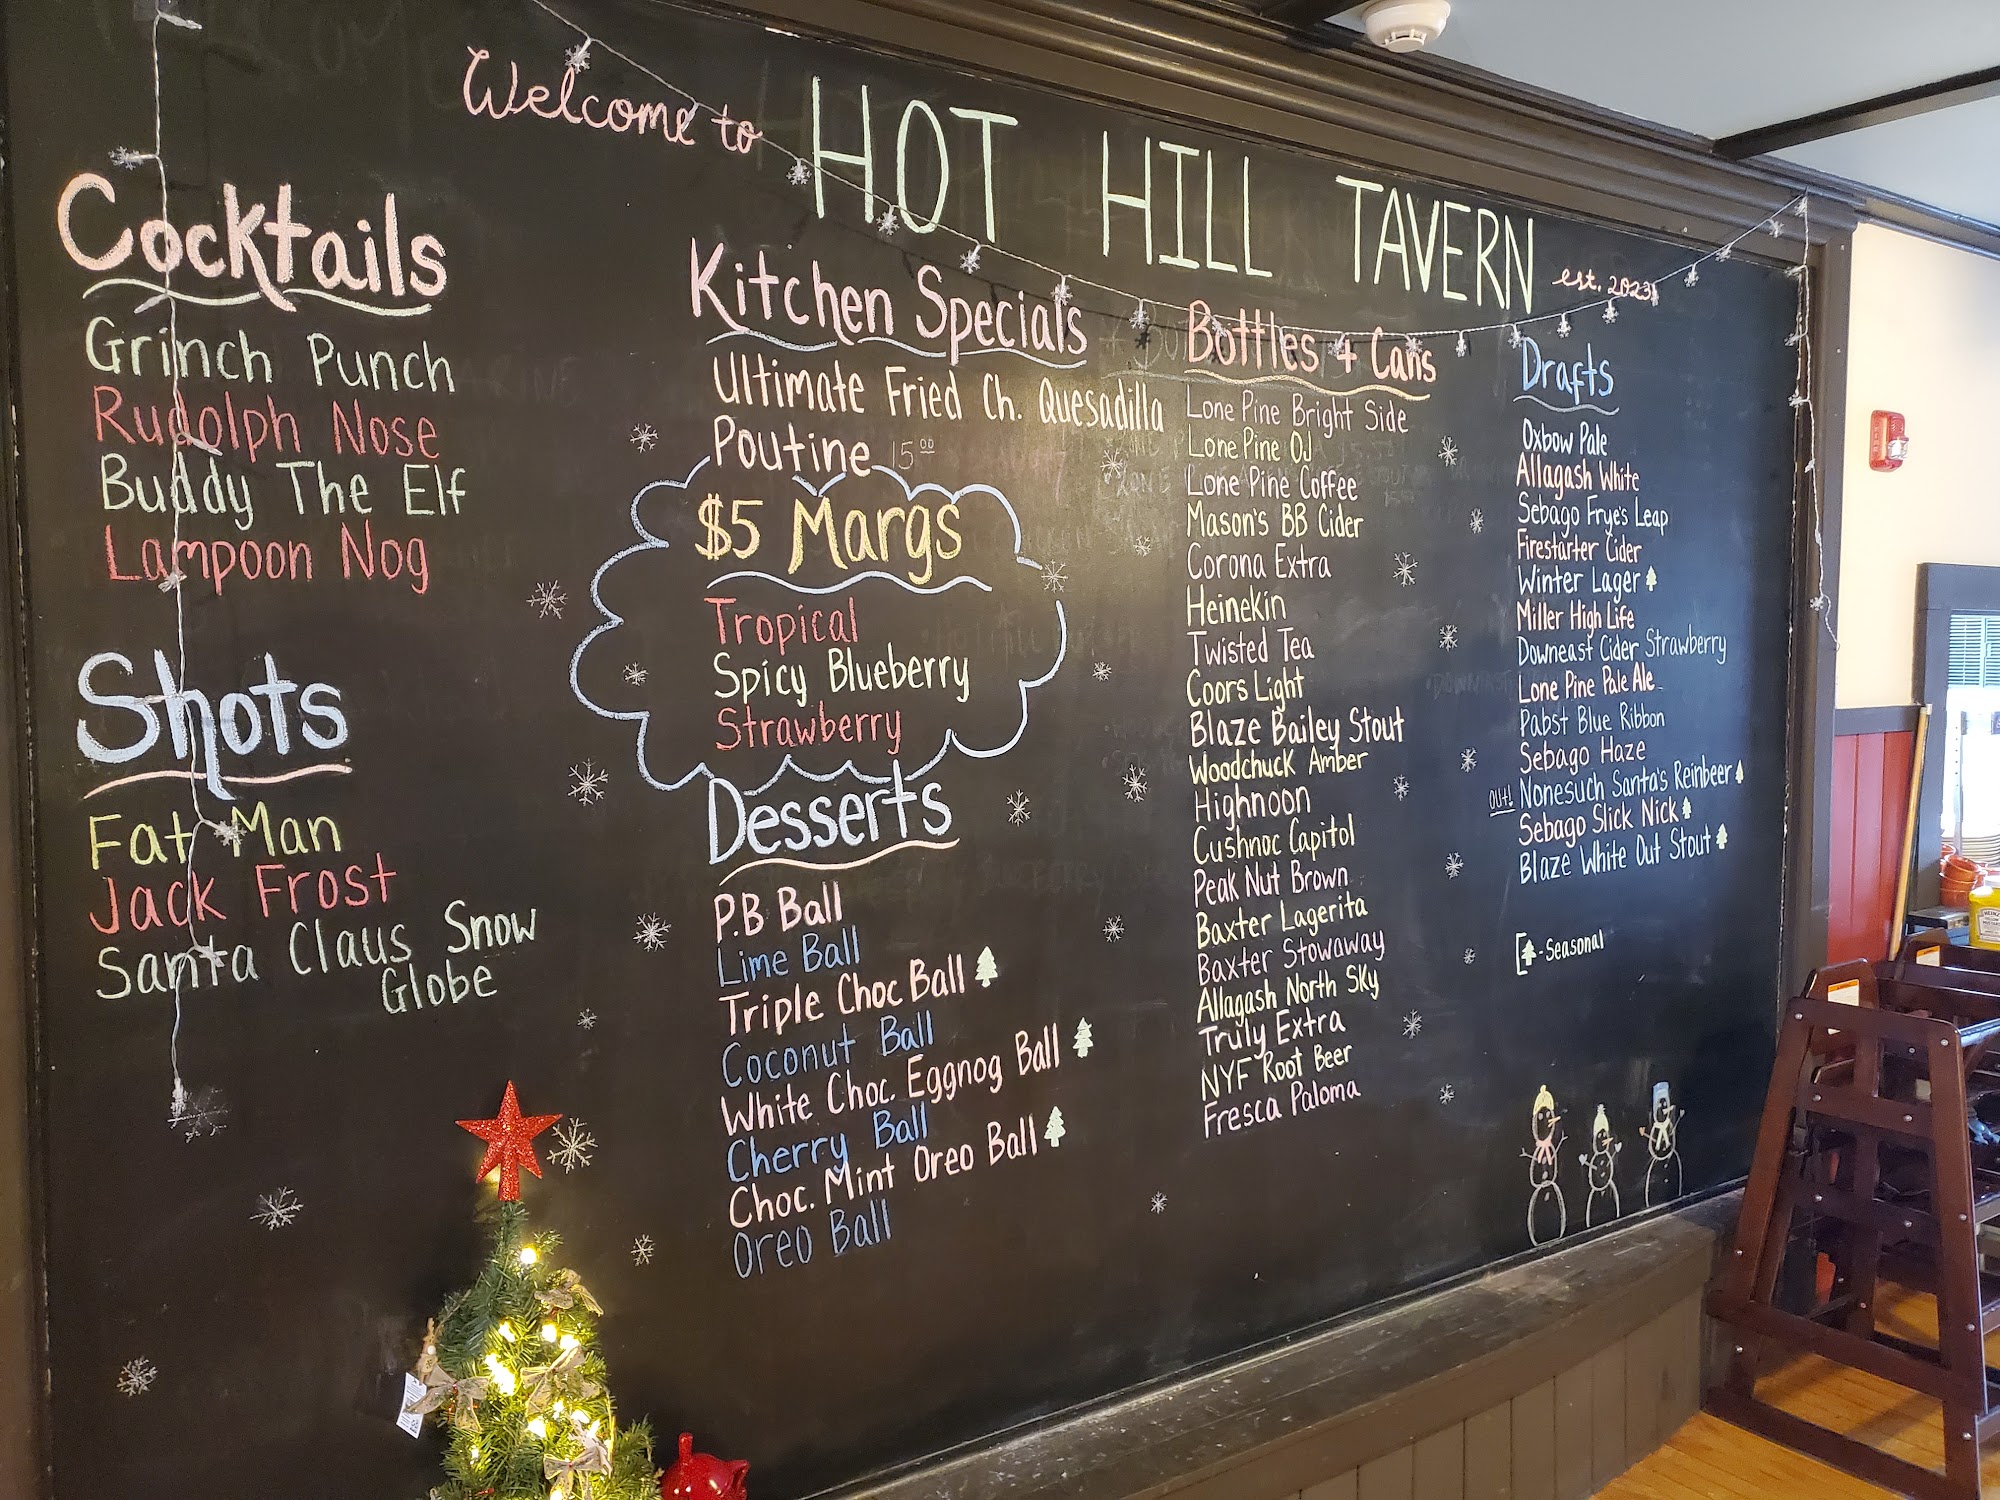 Welcome to HOT HILL TAVERN est. 2023
Cocktails
Grinch Punch
Rudolph Nose
Buddy The Elf
Lampoon Nog
Shots
Fat Man
Jack Frost
Santa Claus Snow
Globe
Kitchen Specials
Ultimate Fried Ch. Quesadilla
Poutine 15.00
$5 Margs
Tropical
Spicy Blueberry
Strawberry
Desserts
P.B Ball
Lime Ball
Triple Choc Ball
Coconut Ball
White Choc. Eggnog Ball
Cherry Ball
Choc. Mint Oreo Ball
Oreo Ball
Bottles + Cans
Lone Pine Bright Side
Lone Pine OJ
Lone Pine Coffee
Mason's BB Cider
Corona Extra
Heinekin
Twisted Tea
Coors Light
Blaze Bailey Stout
Woodchuck Amber
Highnoon
Cushnoc Capitol
Peak Nut Brown
Baxter Lagerita
Baxter Stowaway
Allagash North Sky
Truly Extra
NYF Root Beer
Fresca Paloma
Drafts
Oxbow Pale
Allagash White
Sebago Frye's Leap
Firestarter Cider
Winter Lager
Miller High Life
Downeast Cider Strawberry
Lone Pine Pale Ale
Pabst Blue Ribbon
Sebago Haze
OUT! Nonesuch Santa's Reinbeer
Sebago Slick Nick
Blaze White Out Stout
- Seasonal
HEINZ